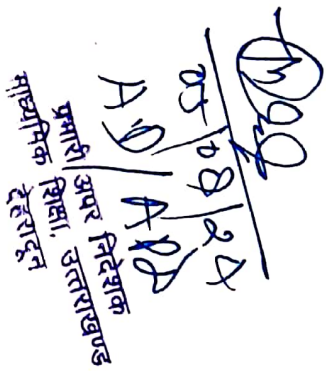 05/08/24
AD/APD
प्रभारी अपर निदेशक
माध्यमिक शिक्षा, उत्तराखण्ड
देहरादून